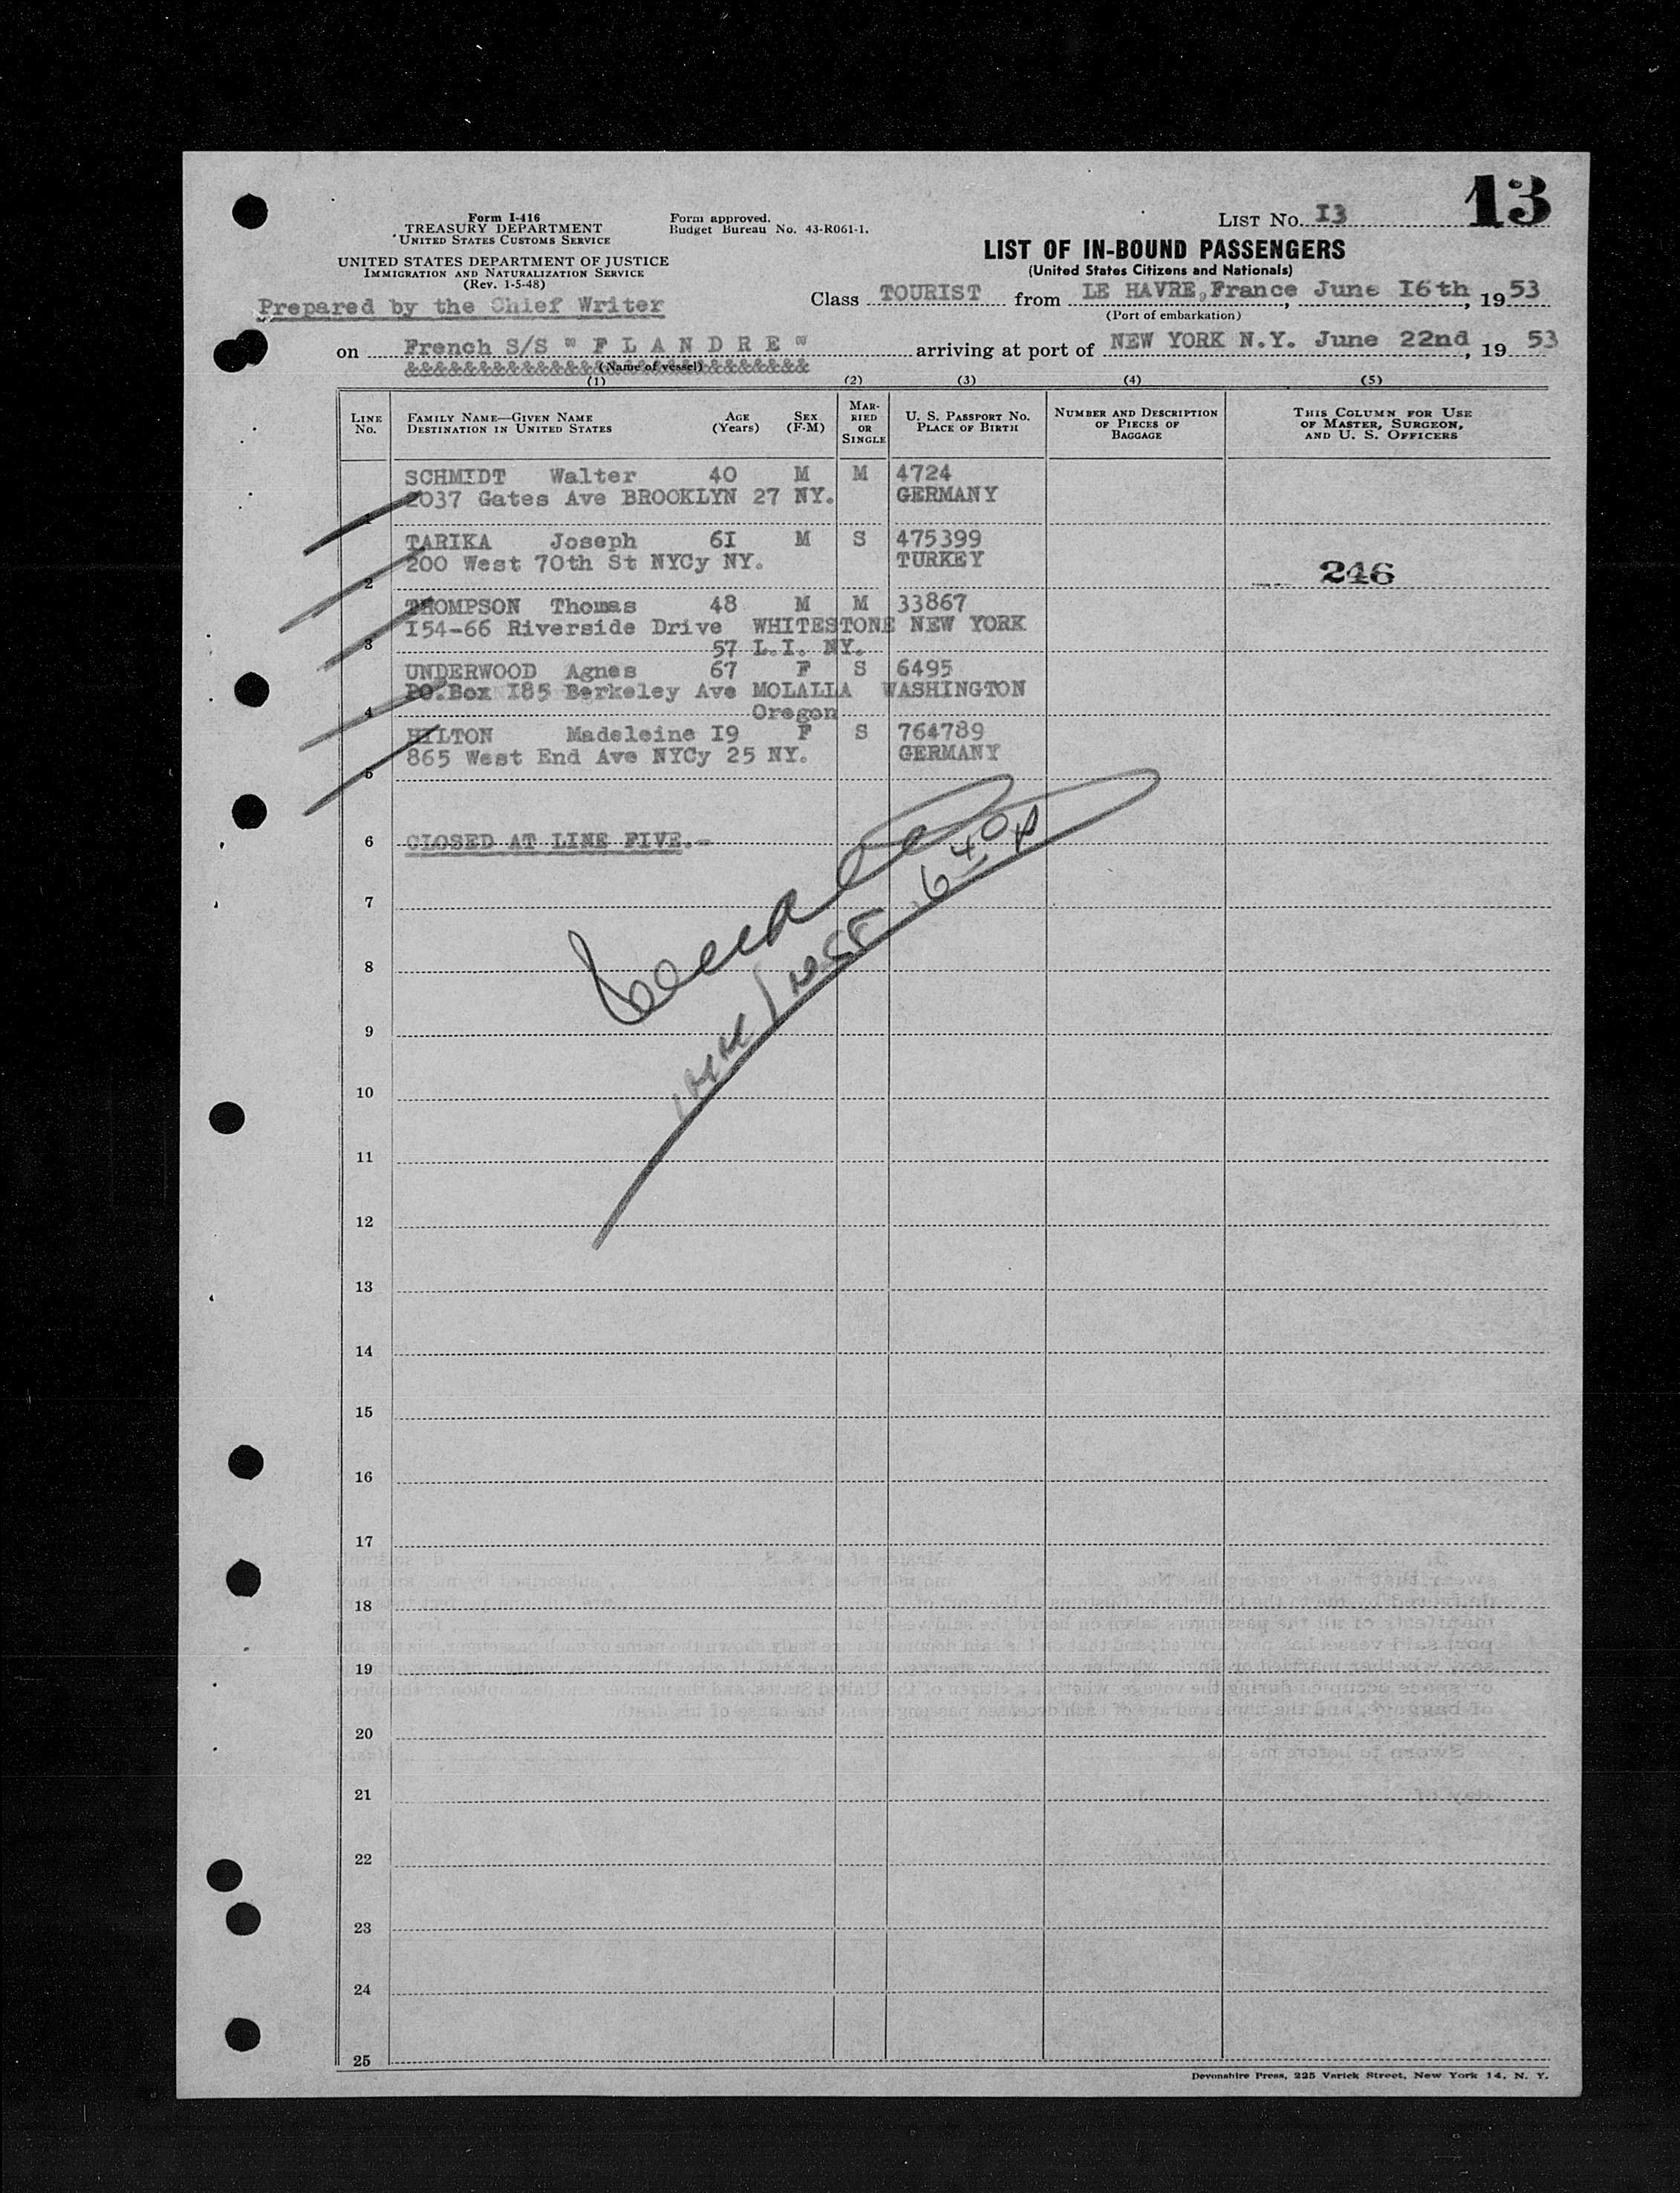 13
LIST No. I3
Form I-416
TREASURY DEPARTMENT
UNITED STATES CUSTOMS SERVICE
UNITED STATES DEPARTMENT OF JUSTICE
IMMIGRATION AND NATURALIZATION SERVICE
(Rev. 1-5-48)
Form approved.
Budget Bureau No. 43-R061-1.
LIST OF IN-BOUND PASSENGERS
(United States Citizens and Nationals)
Prepared by the Chief Writer
Class TOURIST from LE HAVRE, France June I6th, 1953
(Port of embarkation)
on French S/S " F L A N D R E " arriving at port of NEW YORK N.Y. June 22nd, 19 53
&&&&&&&&&&&&& (Name of vessel) &&&&&&&
(1) (2) (3) (4) (5)
LINE No.
FAMILY NAME—GIVEN NAME
DESTINATION IN UNITED STATES
AGE (Years)
SEX (F-M)
MARRIED OR SINGLE
U. S. PASSPORT NO.
PLACE OF BIRTH
NUMBER AND DESCRIPTION OF PIECES OF BAGGAGE
THIS COLUMN FOR USE OF MASTER, SURGEON, AND U. S. OFFICERS
SCHMIDT Walter 40 M M 4724
1 2037 Gates Ave BROOKLYN 27 NY. GERMANY
TARIKA Joseph 6I M S 475399
2 200 West 70th St NYCy NY. TURKEY
246
THOMPSON Thomas 48 M M 33867
I54-66 Riverside Drive WHITESTONE NEW YORK
3 57 L.I. NY.
UNDERWOOD Agnes 67 F S 6495
PO.Box I85 Berkeley Ave MOLALLA WASHINGTON
4 Oregon
HILTON Madeleine I9 F S 764789
5 865 West End Ave NYCy 25 NY. GERMANY
6 CLOSED AT LINE FIVE.-
7
8
9
10
11
12
13
14
15
16
17
18
19
20
21
22
23
24
25
Devonshire Press, 225 Varick Street, New York 14, N. Y.